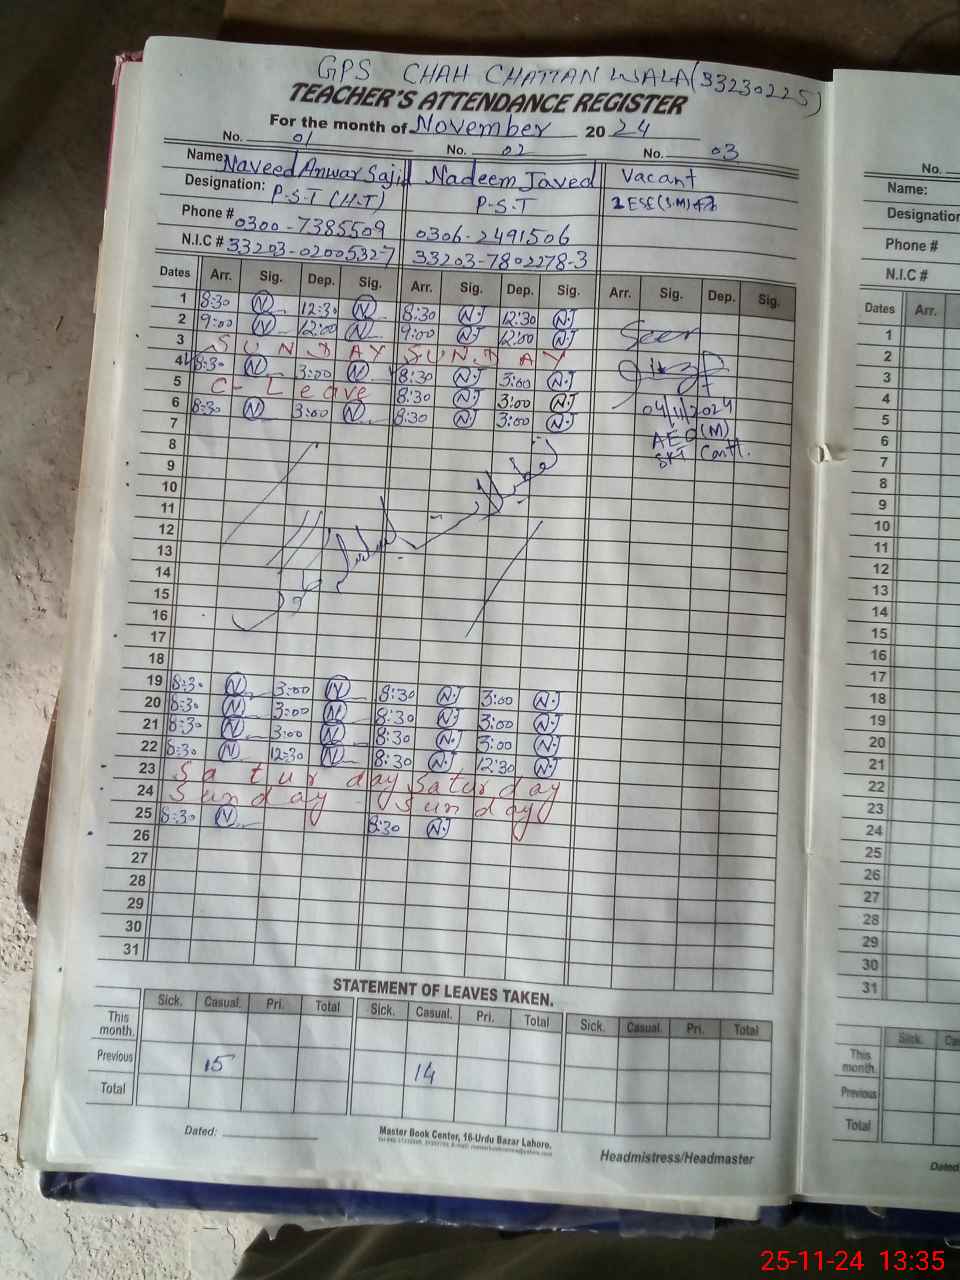 GPS CHAH CHATTAN WALA (33230225)
TEACHER'S ATTENDANCE REGISTER
For the month of November 2024
No. 01 No. 02 No. 03
Name: Naveed Anwar Sajid Nadeem Javed Vacant
Designation: P.S.T (H.T) P.S.T 1 ESE (S.M)
Phone # 0300-7385509 0306-2491506
N.I.C # 33203-0200532-7 33203-7802278-3
Dates Arr. Sig. Dep. Sig. Arr. Sig. Dep. Sig. Arr. Sig. Dep. Sig.
1 8:30 N 12:30 N 8:30 N.J 12:30 N.J
2 9:00 N 12:00 N 9:00 N.J 12:00 N.J Seen
3 SUNDAY SUNDAY
4 8:30 N 3:00 N 8:30 N.J 3:00 N.J
5 C-Leave 8:30 N.J 3:00 N.J 04/11/2024
6 8:30 N 3:00 N 8:30 N.J 3:00 N.J AEO (M)
7 SKT Cantt.
8
9
10
11
12
13
14
15
16
17
18
19 8:30 N 3:00 N 8:30 N.J 3:00 N.J
20 8:30 N 3:00 N 8:30 N.J 3:00 N.J
21 8:30 N 3:00 N 8:30 N.J 3:00 N.J
22 8:30 N 12:30 N 8:30 N.J 12:30 N.J
23 Saturday Saturday
24 Sunday Sunday
25 8:30 N 8:30 N.J
26
27
28
29
30
31
STATEMENT OF LEAVES TAKEN.
Sick. Casual. Pri. Total Sick. Casual. Pri. Total Sick. Casual. Pri. Total
This month.
Previous 15 14
Total
Dated:
Master Book Center, 16-Urdu Bazar Lahore.
Headmistress/Headmaster
No.
Name:
Designation
Phone #
N.I.C #
Dates Arr.
1
2
3
4
5
6
7
8
9
10
11
12
13
14
15
16
17
18
19
20
21
22
23
24
25
26
27
28
29
30
31
Sick.
This month.
Previous
Total
Dated
25-11-24 13:35